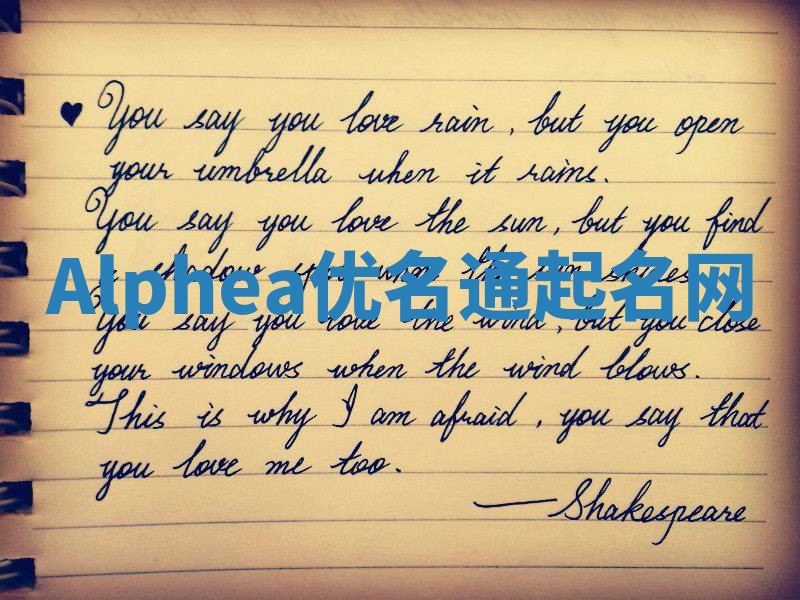 ♥ You say you love rain, but you open
your umbrella when it rains.
You say you love the sun, but you find
a shadow spot when the sun shines.
Alphea优名通起名网
You say you love the wind, but you close
your windows when the wind blows.
This is why I am afraid, you say that
you love me too.
— Shakespeare